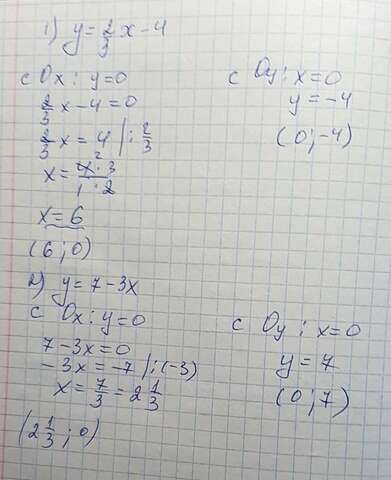 1) y = 2/3 x - 4
с Ox: y=0
2/3 x - 4 = 0
2/3 x = 4 |: 2/3
x = 4² · 3 / 1 · 2
x = 6
(6; 0)
с Oy: x=0
y = -4
(0; -4)
2) y = 7 - 3x
с Ox: y=0
7 - 3x = 0
-3x = -7 |: (-3)
x = 7/3 = 2 1/3
(2 1/3; 0)
с Oy: x=0
y = 7
(0; 7)